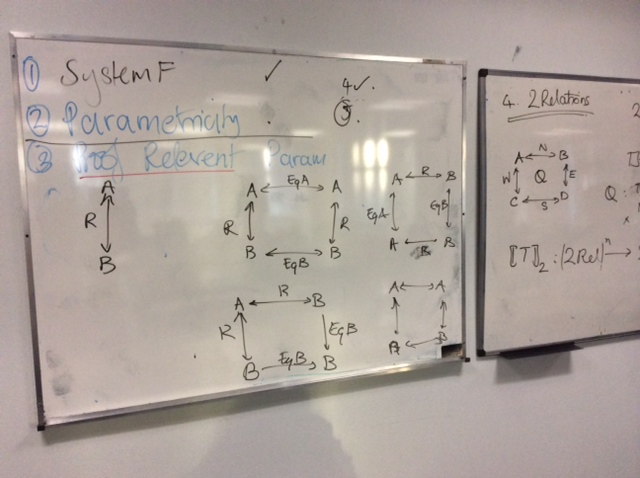 ① System F ✓
4 ✓.
② Parametricity
⑤.
③ Proof Relevant Param
A
R
B
A EqA A
R R
B EqB B
A R B
EqA EqB
A R B
A R B
R EqB
B EqB B
A A
B B
4. 2Relations
A N B
W Q E
C S D
Q :
⟦T⟧₂ : |2Rel|ⁿ →